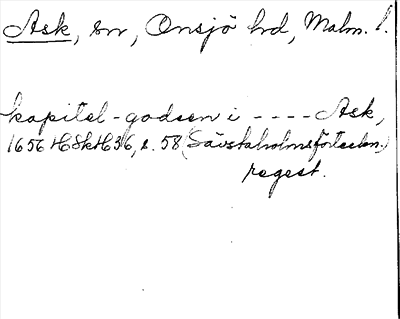 Ask, sn, Onsjö hd, Malm. l.
kapitel-godsen i ---- Ask,
1656 HSkH36, s. 58 (Sävstaholmsförteckn.)
regest.